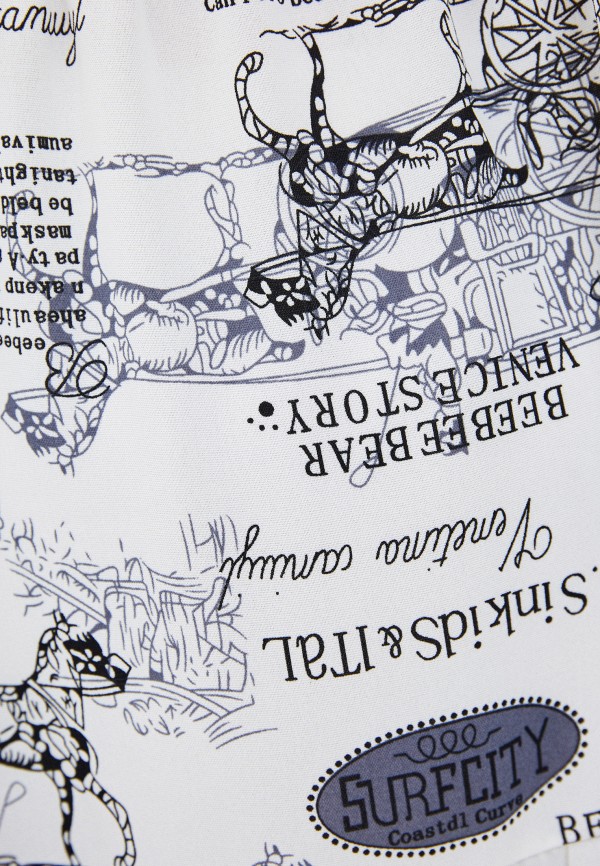 camuyl
aumiva
tanight
be beld
maskpa
pa ty A
n akenp
aheaulif
eebee
B
BEEBEEBEAR
VENICESTORY
Venetina camuyl
.SinkidS & ITaL
SURFCITY
Coastdl Curve
BE